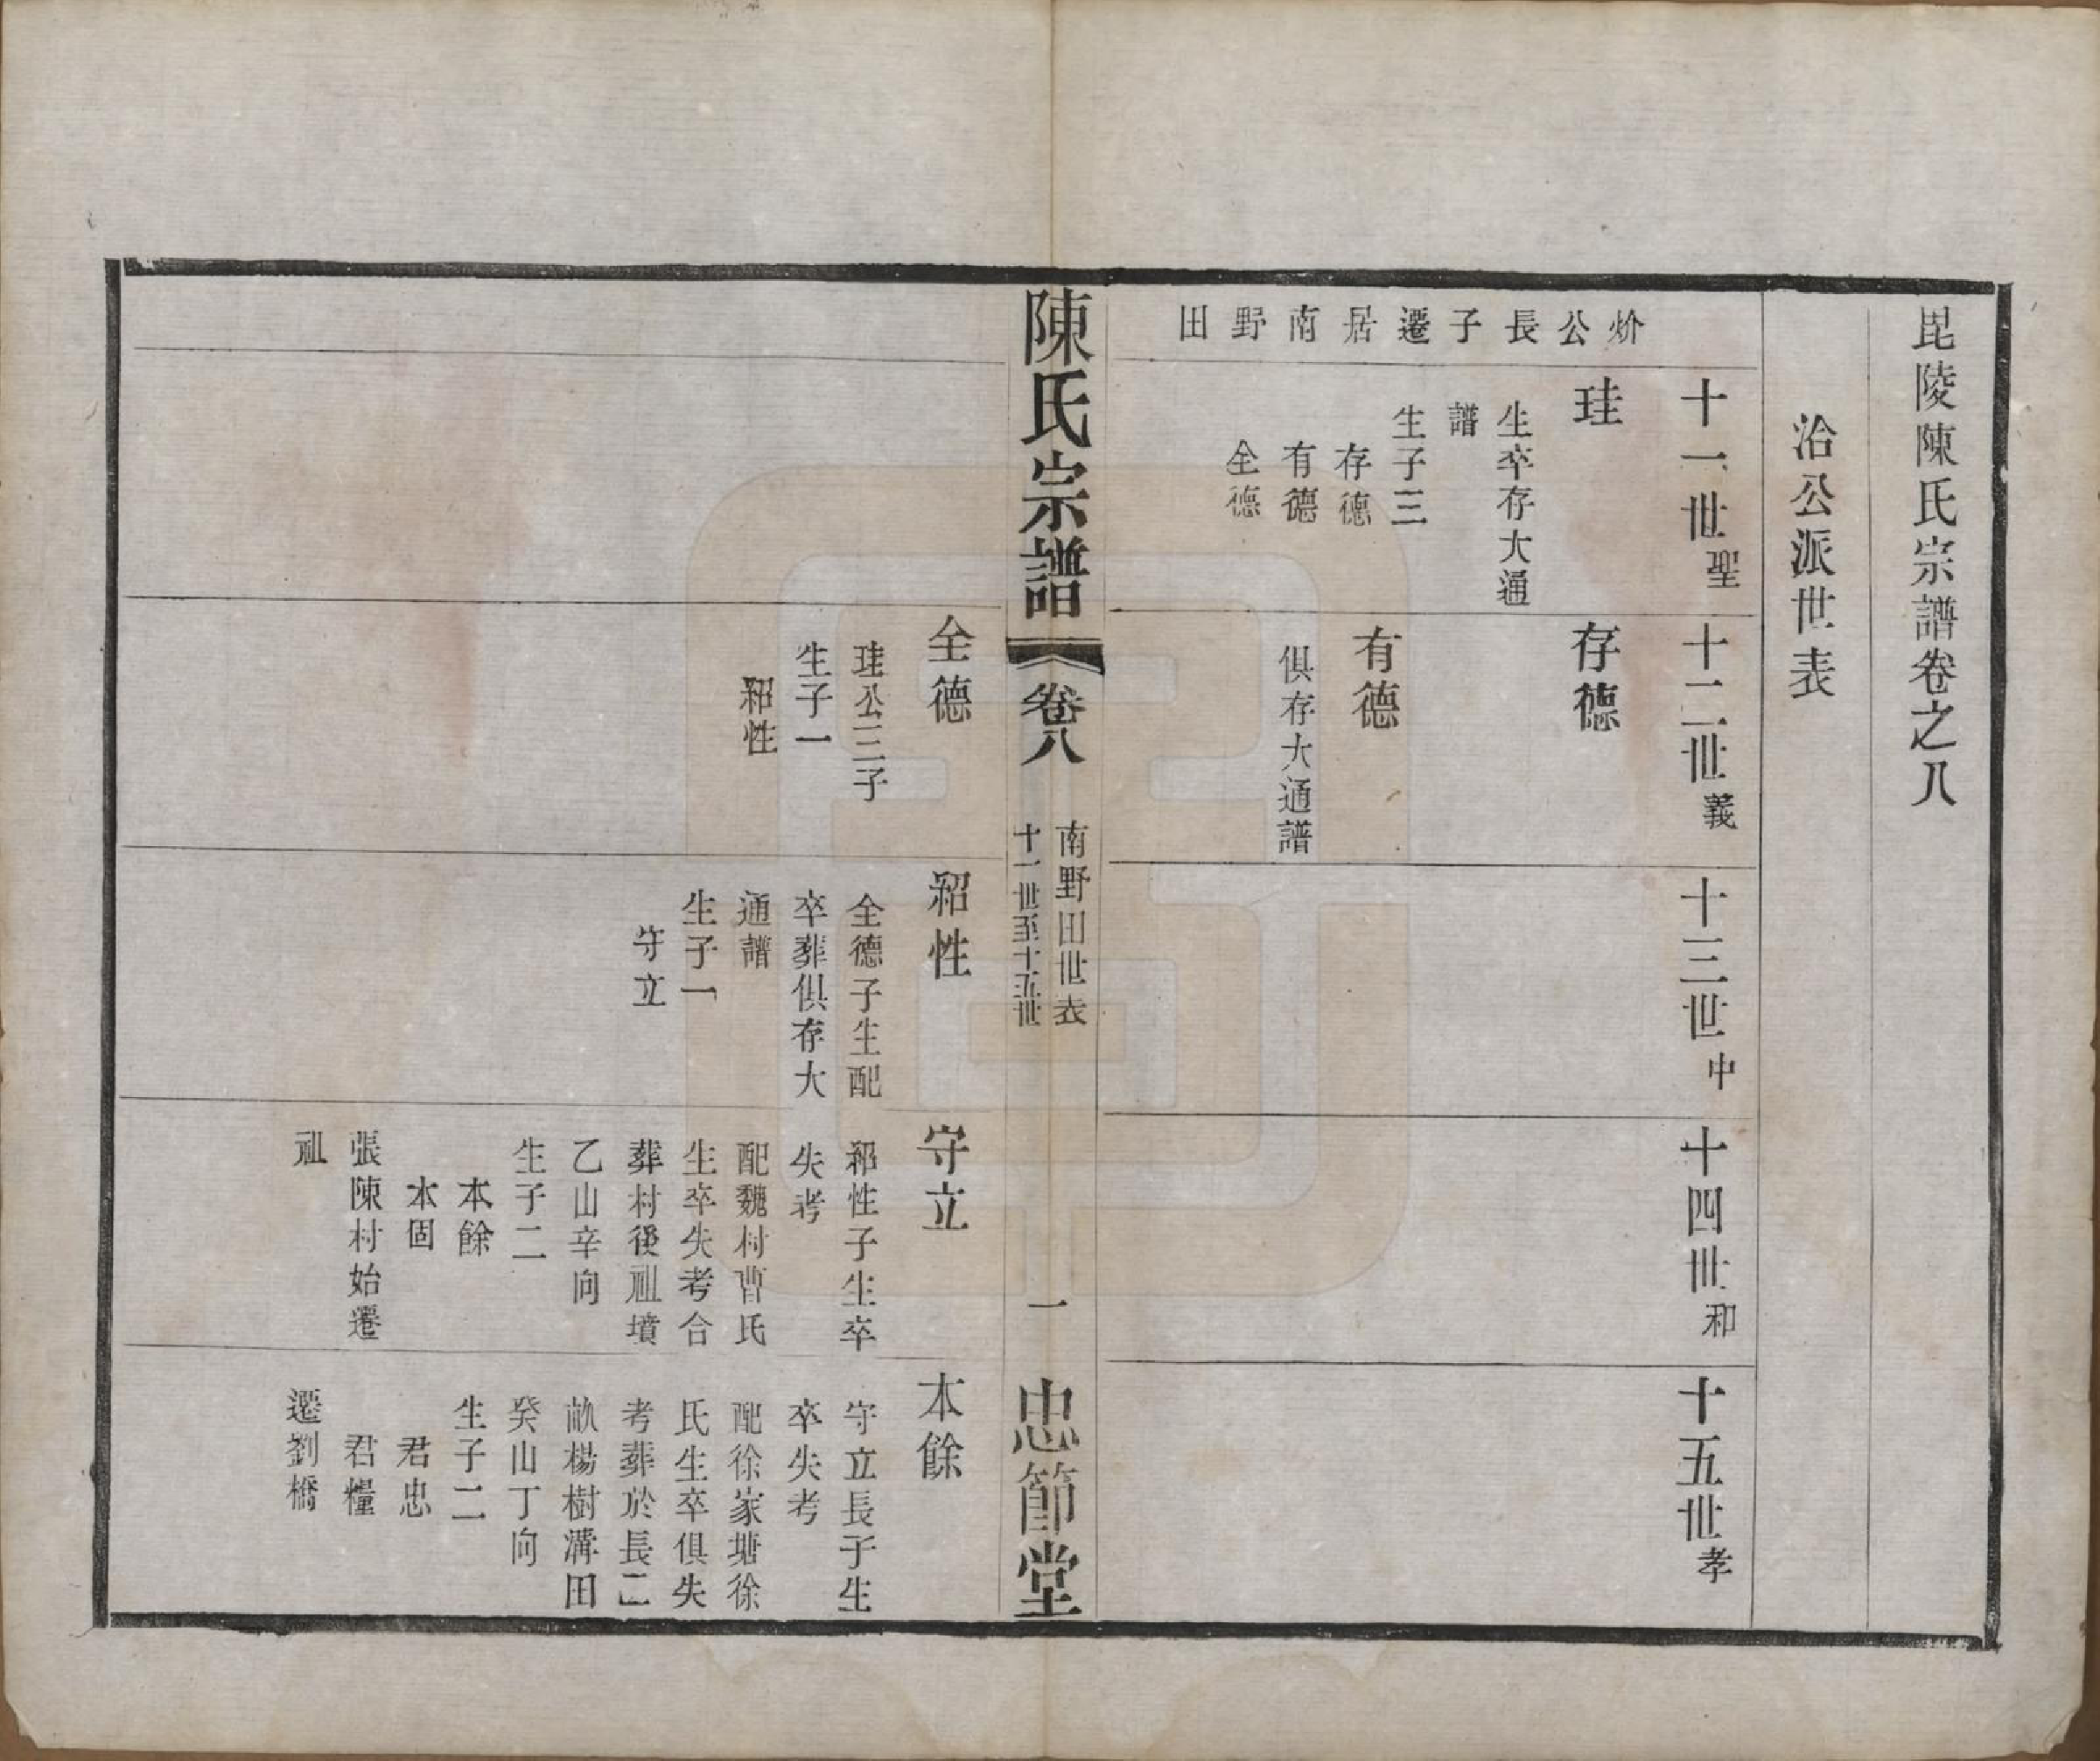 毘陵陳氏宗譜卷之八
洽公派世表
十一世聖
十二世義
十三世中
十四世和
十五世孝
炌公長子遷居南野田
珪
生卒存大通
譜
生子三
存德
有德
全德
存德
有德
俱存大通譜
陳氏宗譜
卷八
南野田世表
十一世至十五世
一
忠節堂
全德
珪公三子
生子一
紹性
紹性
全德子生配
卒葬俱存大
通譜
生子一
守立
守立
紹性子生卒
失考
配魏村曹氏
生卒失考合
葬村後祖墳
乙山辛向
生子二
本餘
本固
張陳村始遷
祖
本餘
守立長子生
卒失考
配徐家塘徐
氏生卒俱失
考葬於長二
畝楊樹溝田
癸山丁向
生子二
君忠
君糧
遷劉橋